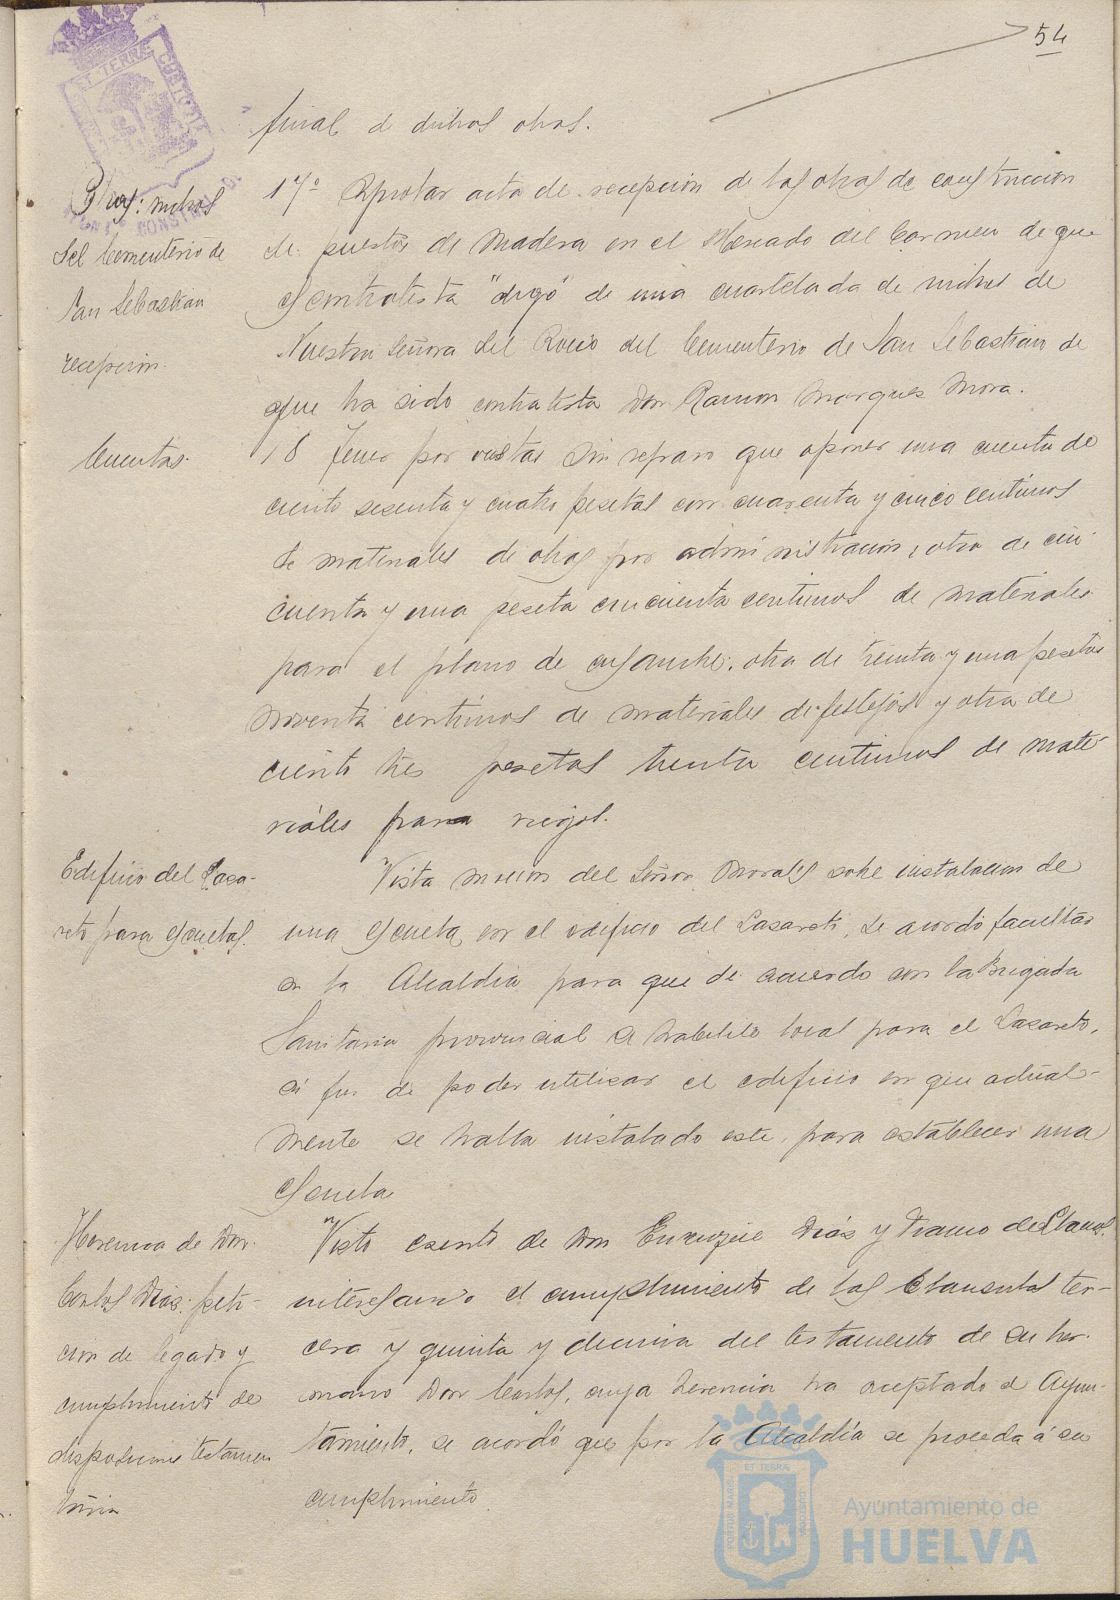 54
final de dichas obras.
Obras: nichos
del Cementerio de
San Sebastian
recepcion.
17º Aprobar acta de recepcion de las obras de construccion
de puestos de madera en el Mercado del Carmen de que
es contratista "digo" de una cuartelada de nichos de
Nuestra Señora del Rocio del Cementerio de San Sebastian de
que ha sido contratista Don Ramon Marquez Mora.
Cuentas.
18 Tener por vistas sin reparo que oponer una cuenta de
ciento sesenta y cuatro pesetas con cuarenta y cinco centimos
de materiales de obras por administracion, otra de cin-
cuenta y una peseta cincuenta centimos de materiales
para el plano de ensanche, otra de treinta y una pesetas
noventa centimos de materiales de festejos y otra de
ciento tres pesetas treinta centimos de mate-
riales para riegos.
Edificio del Laza-
reto para escuelas.
Vista mocion del Señor Morales sobre instalacion de
una escuela en el edificio del Lazareto, se acordó facultar
a la Alcaldia para que de acuerdo con la Brigada
Sanitaria provincial se habilite local para el Lazareto,
a fin de poder utilizar el edificio en que actual-
mente se halla instalado este, para establecer una
escuela
Herencia de Don
Carlos Diaz: peti-
cion de legado y
cumplimiento de
disposiciones testamen
taria
Visto escrito de Don Enrique Diaz y Franco de Llanos,
interesando el cumplimiento de las clausulas ter-
cera y quinta y decima del testamento de su her-
mano Don Carlos, cuya herencia ha aceptado el Ayun-
tamiento, se acordó que por la Alcaldía se proceda á su
cumplimiento.
Ayuntamiento de
HUELVA